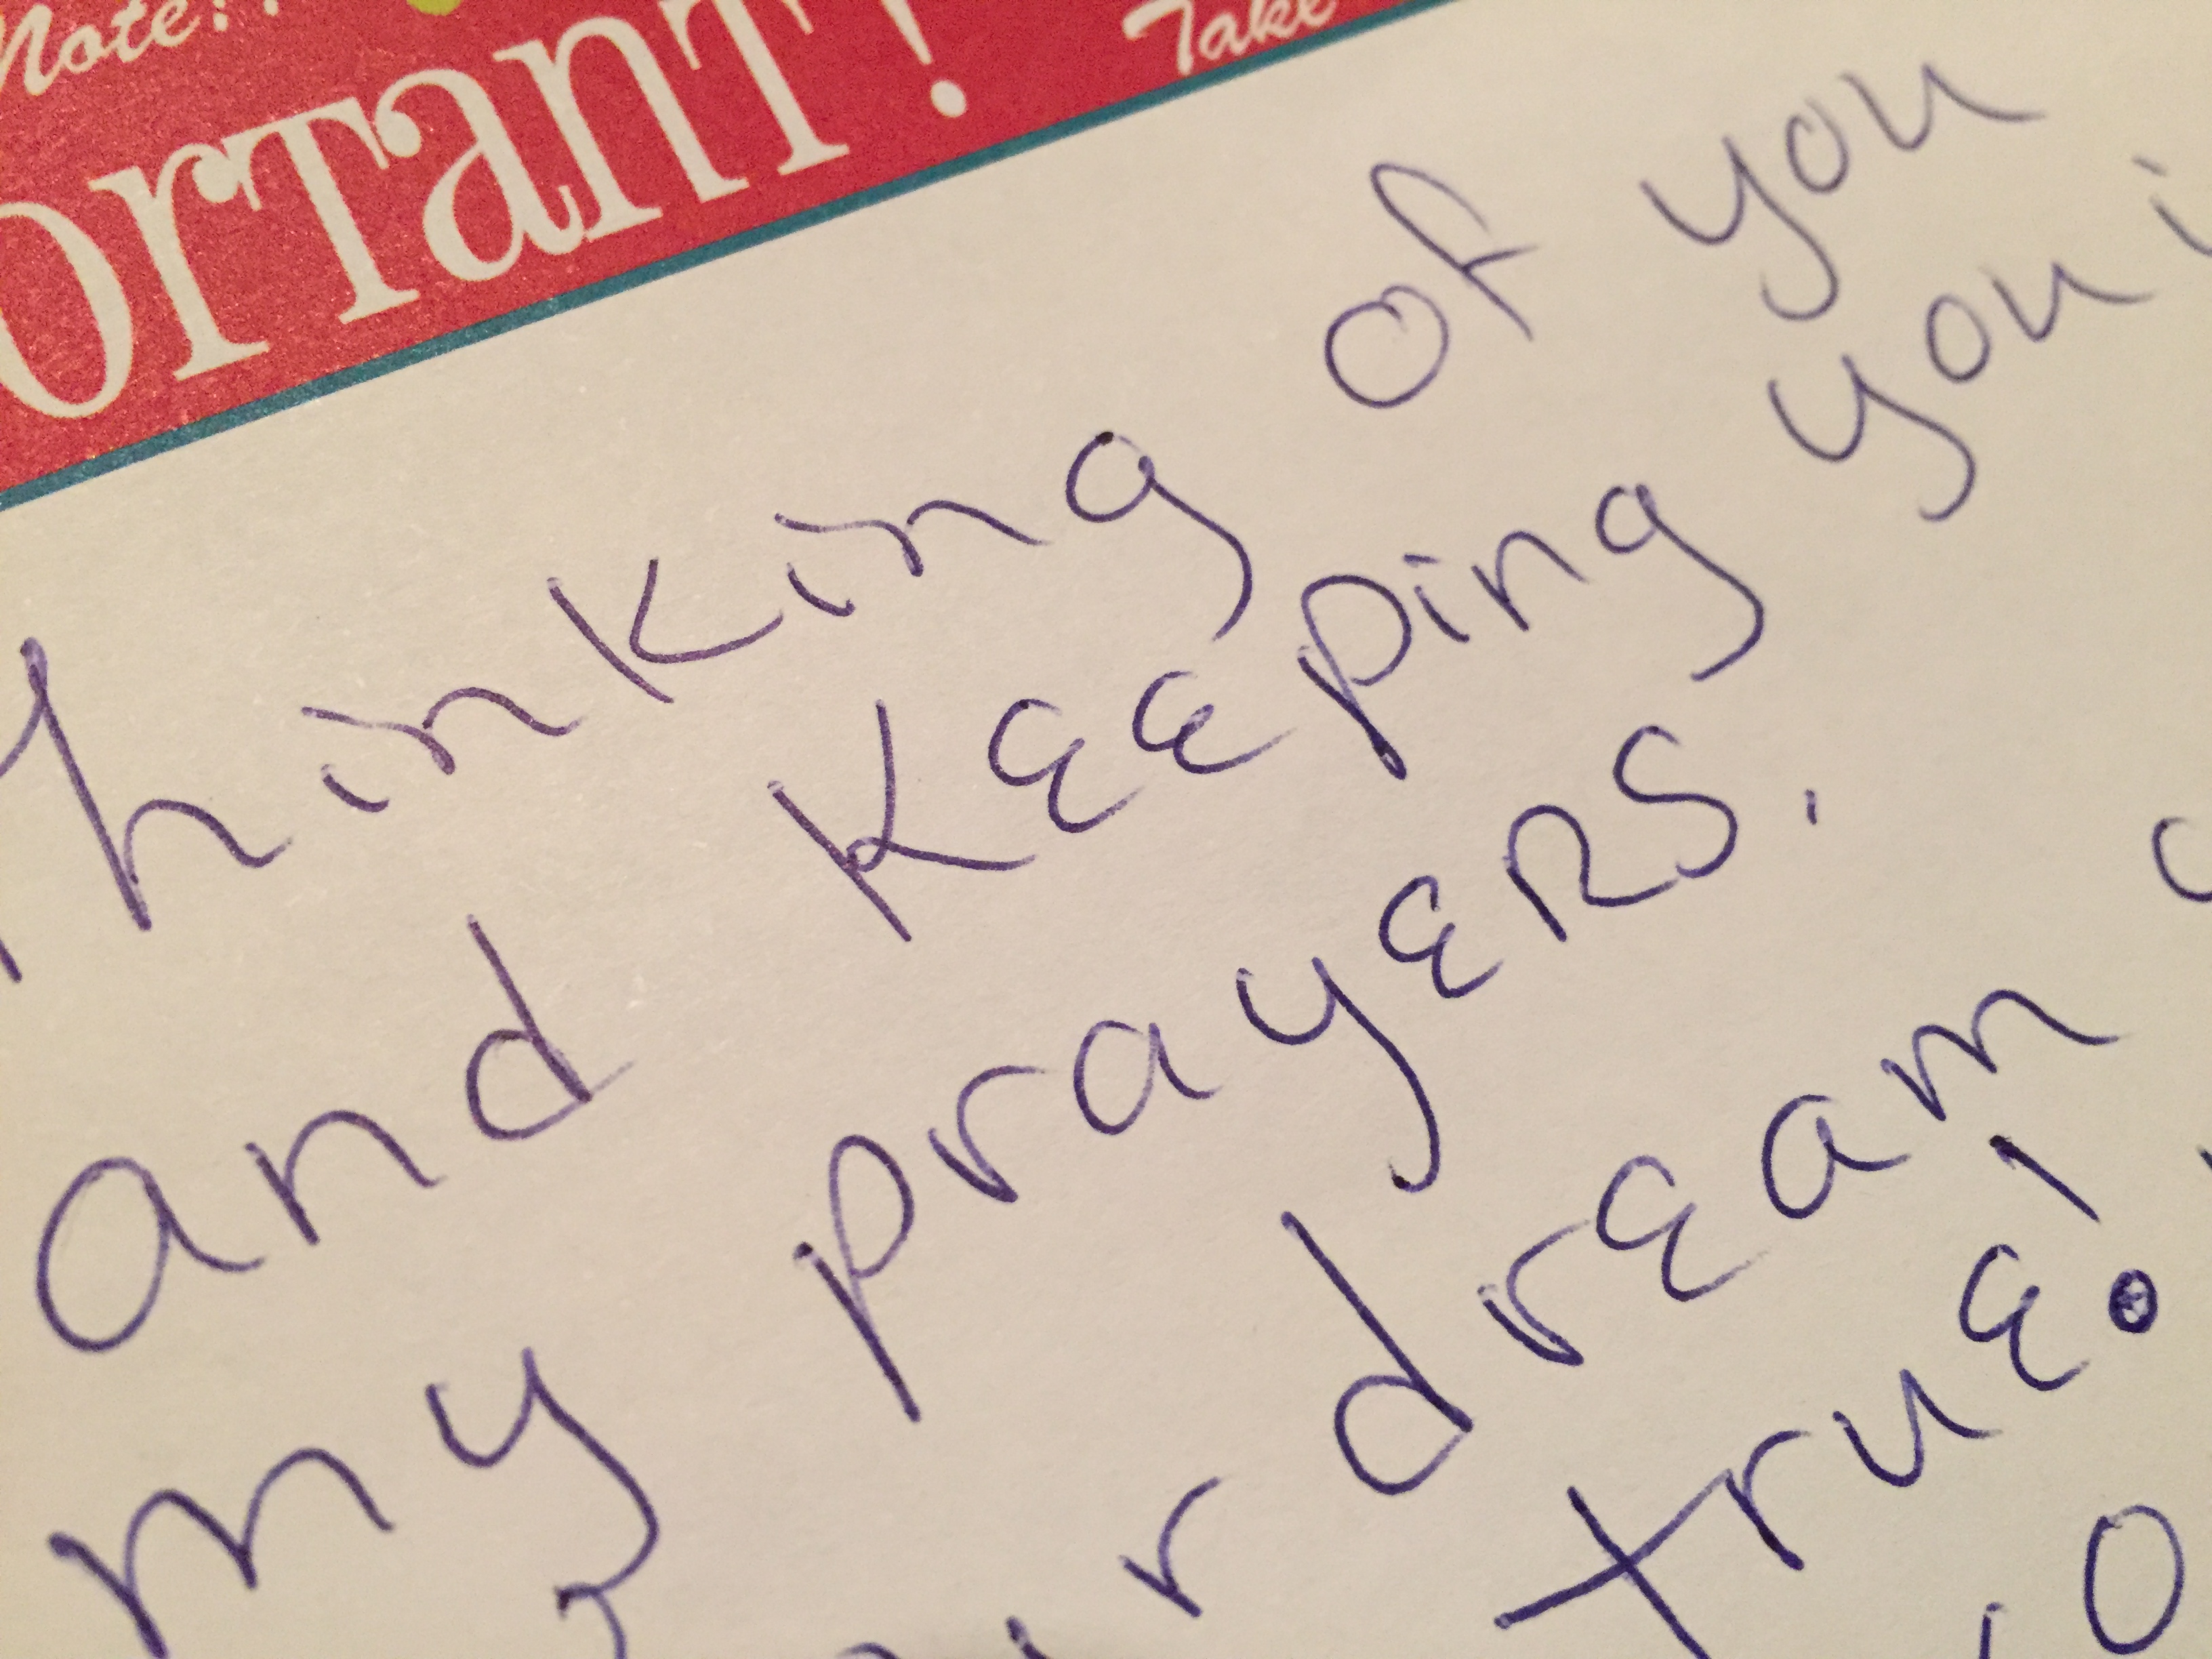 Note!!
ortant!
Take
Thinking of you
and Keeping you i
my prayers.
r dream
true!